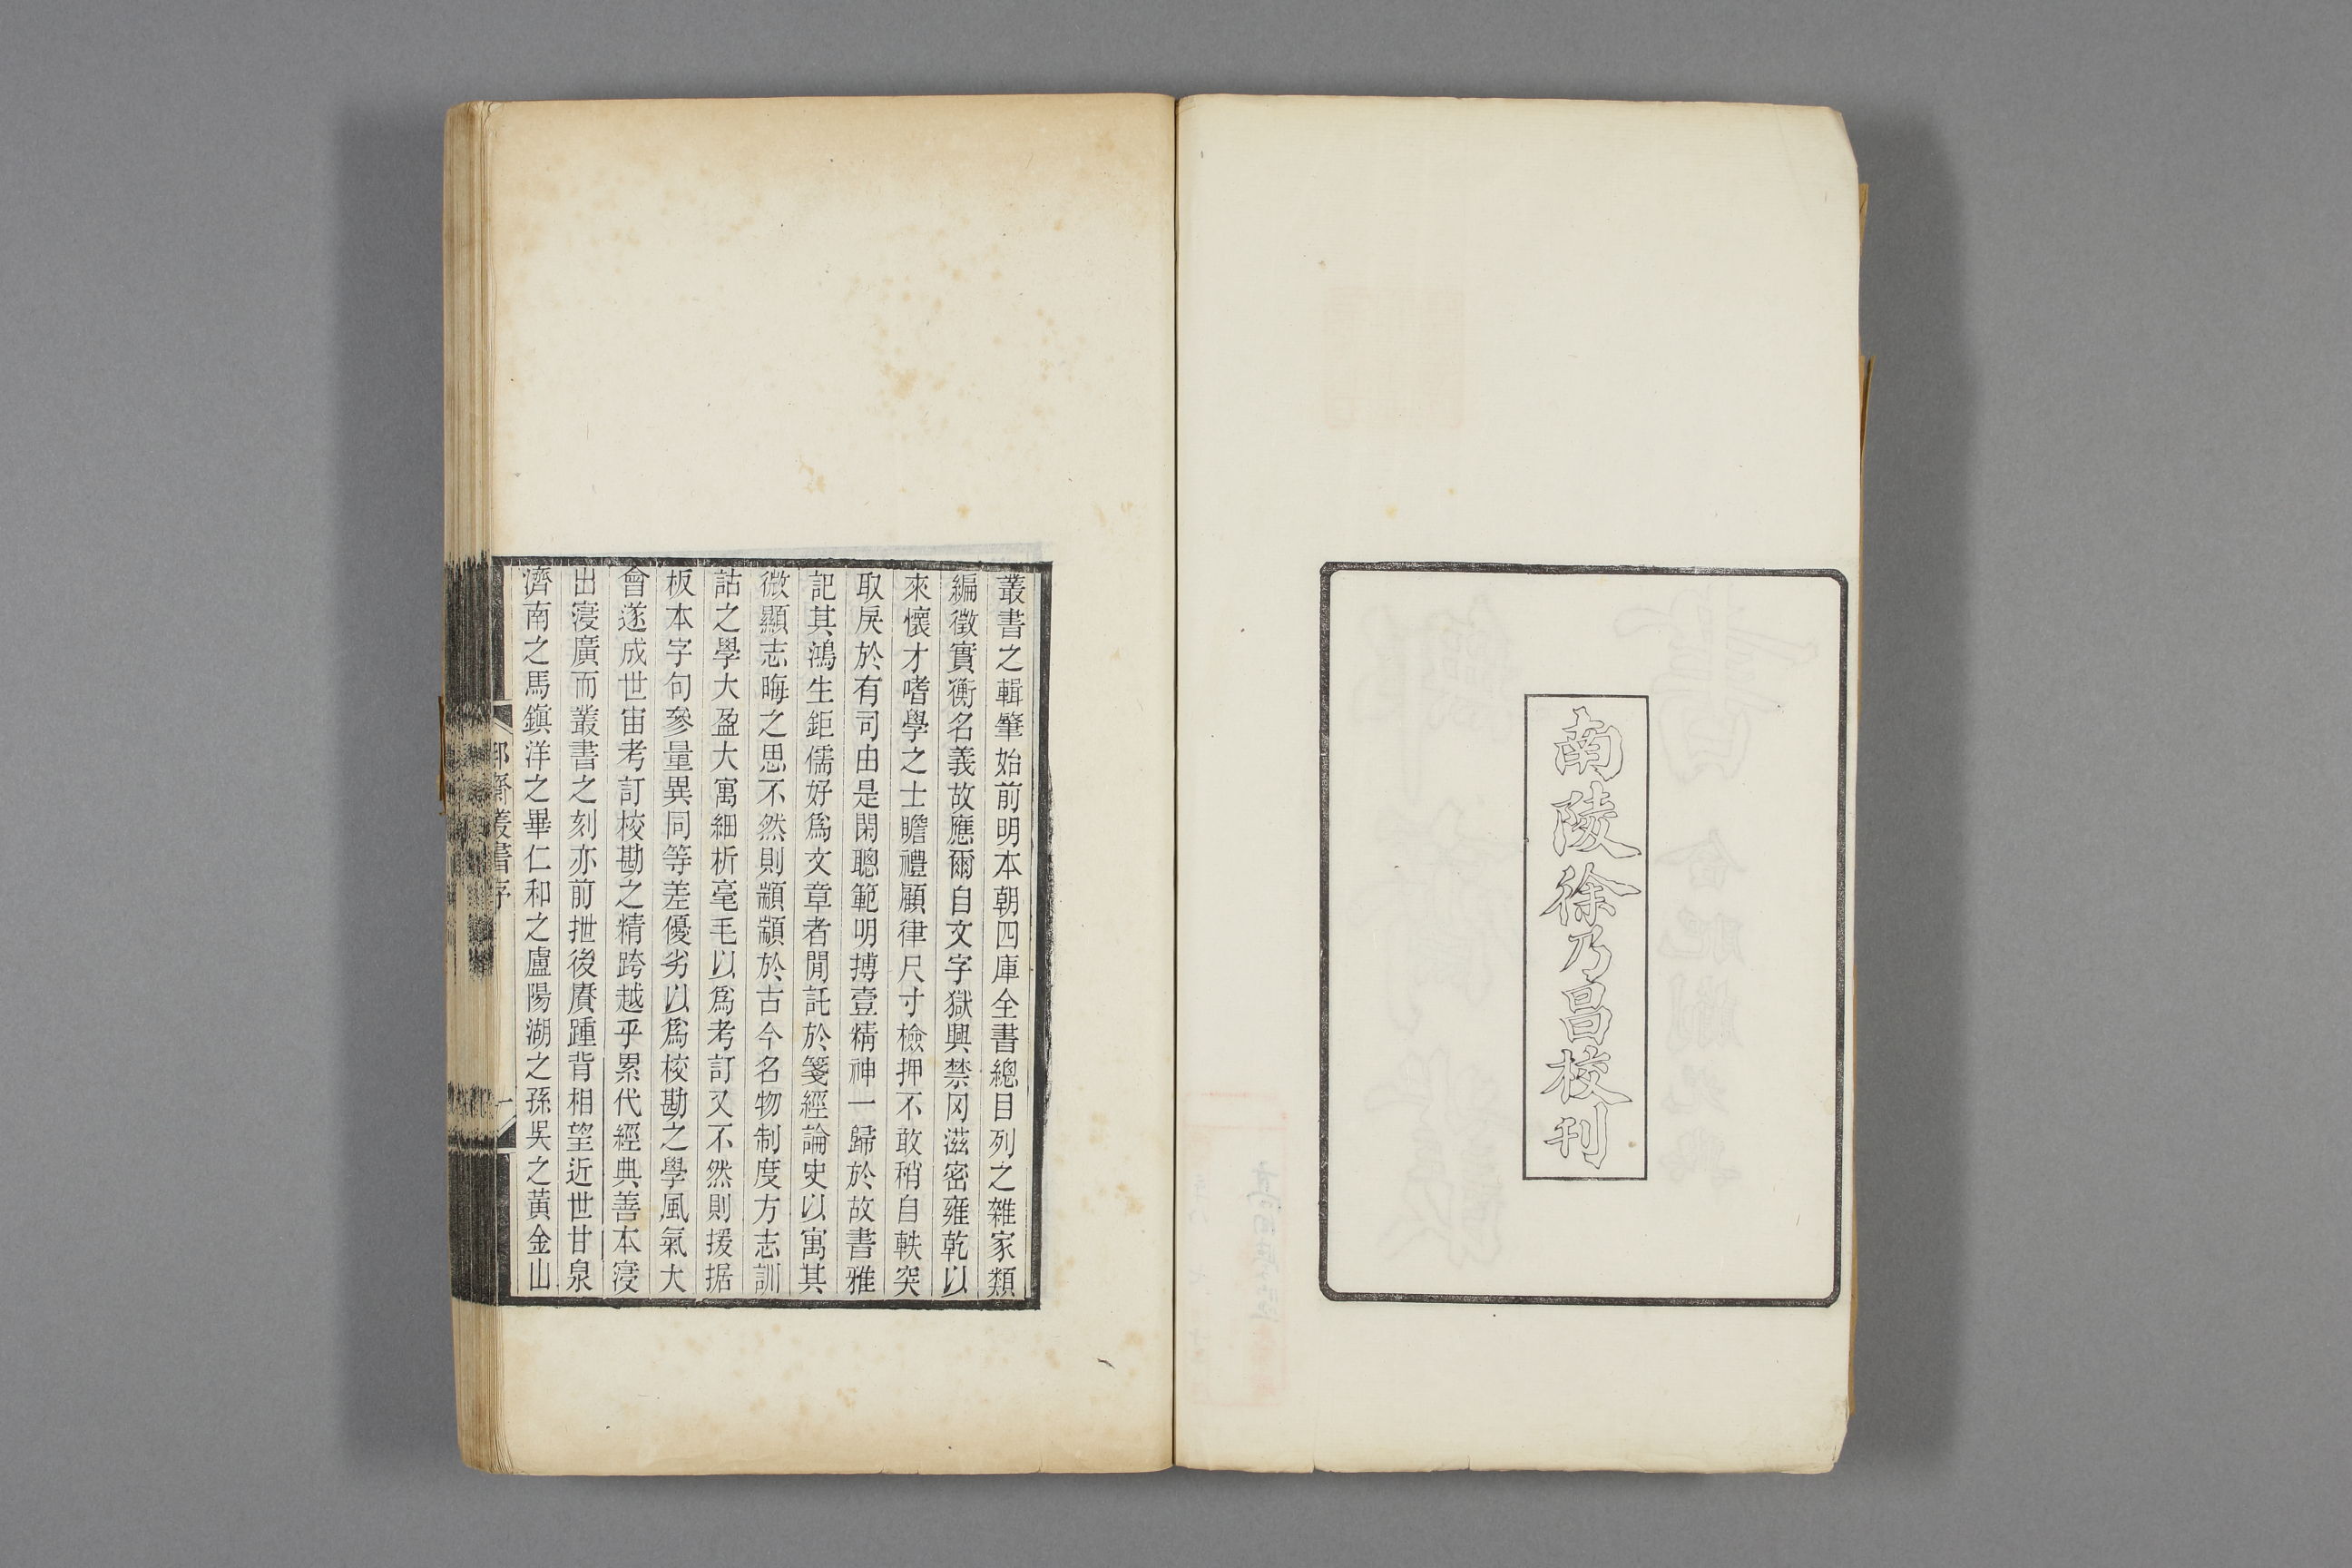 南陵徐乃昌校刊
叢書之輯肇始前明本朝四庫全書總目列之雜家類
編徵實衡名義故應爾自文字獄興禁罔滋密雍乾以
來懷才嗜學之士瞻禮顧律尺寸檢押不敢稍自軼突
取戾於有司由是閑聰範明搏壹精神一歸於故書雅
記其鴻生鉅儒好爲文章者閒託於箋經論史以寓其
微顯志晦之思不然則顓顓於古今名物制度方志訓
詁之學大盈大寓細析毫毛以爲考訂又不然則援据
板本字句參量異同等差優劣以爲校勘之學風氣大
會遂成世宙考訂校勘之精跨越乎累代經典善本寖
出寖廣而叢書之刻亦前抴後賡踵背相望近世甘泉
濟南之馬鎮洋之畢仁和之盧陽湖之孫吳之黃金山
叢書序
一